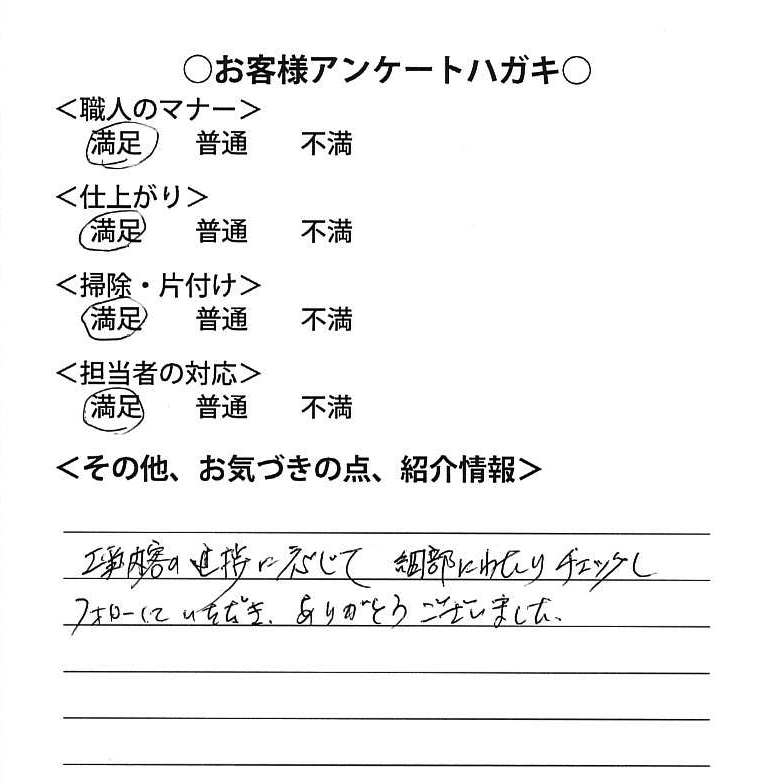 ○お客様アンケートハガキ○
＜職人のマナー＞
満足 普通 不満
＜仕上がり＞
満足 普通 不満
＜掃除・片付け＞
満足 普通 不満
＜担当者の対応＞
満足 普通 不満
＜その他、お気づきの点、紹介情報＞
工事内容の進捗に応じて 細部にわたりチェックし
フォローしていただき、ありがとうございました。